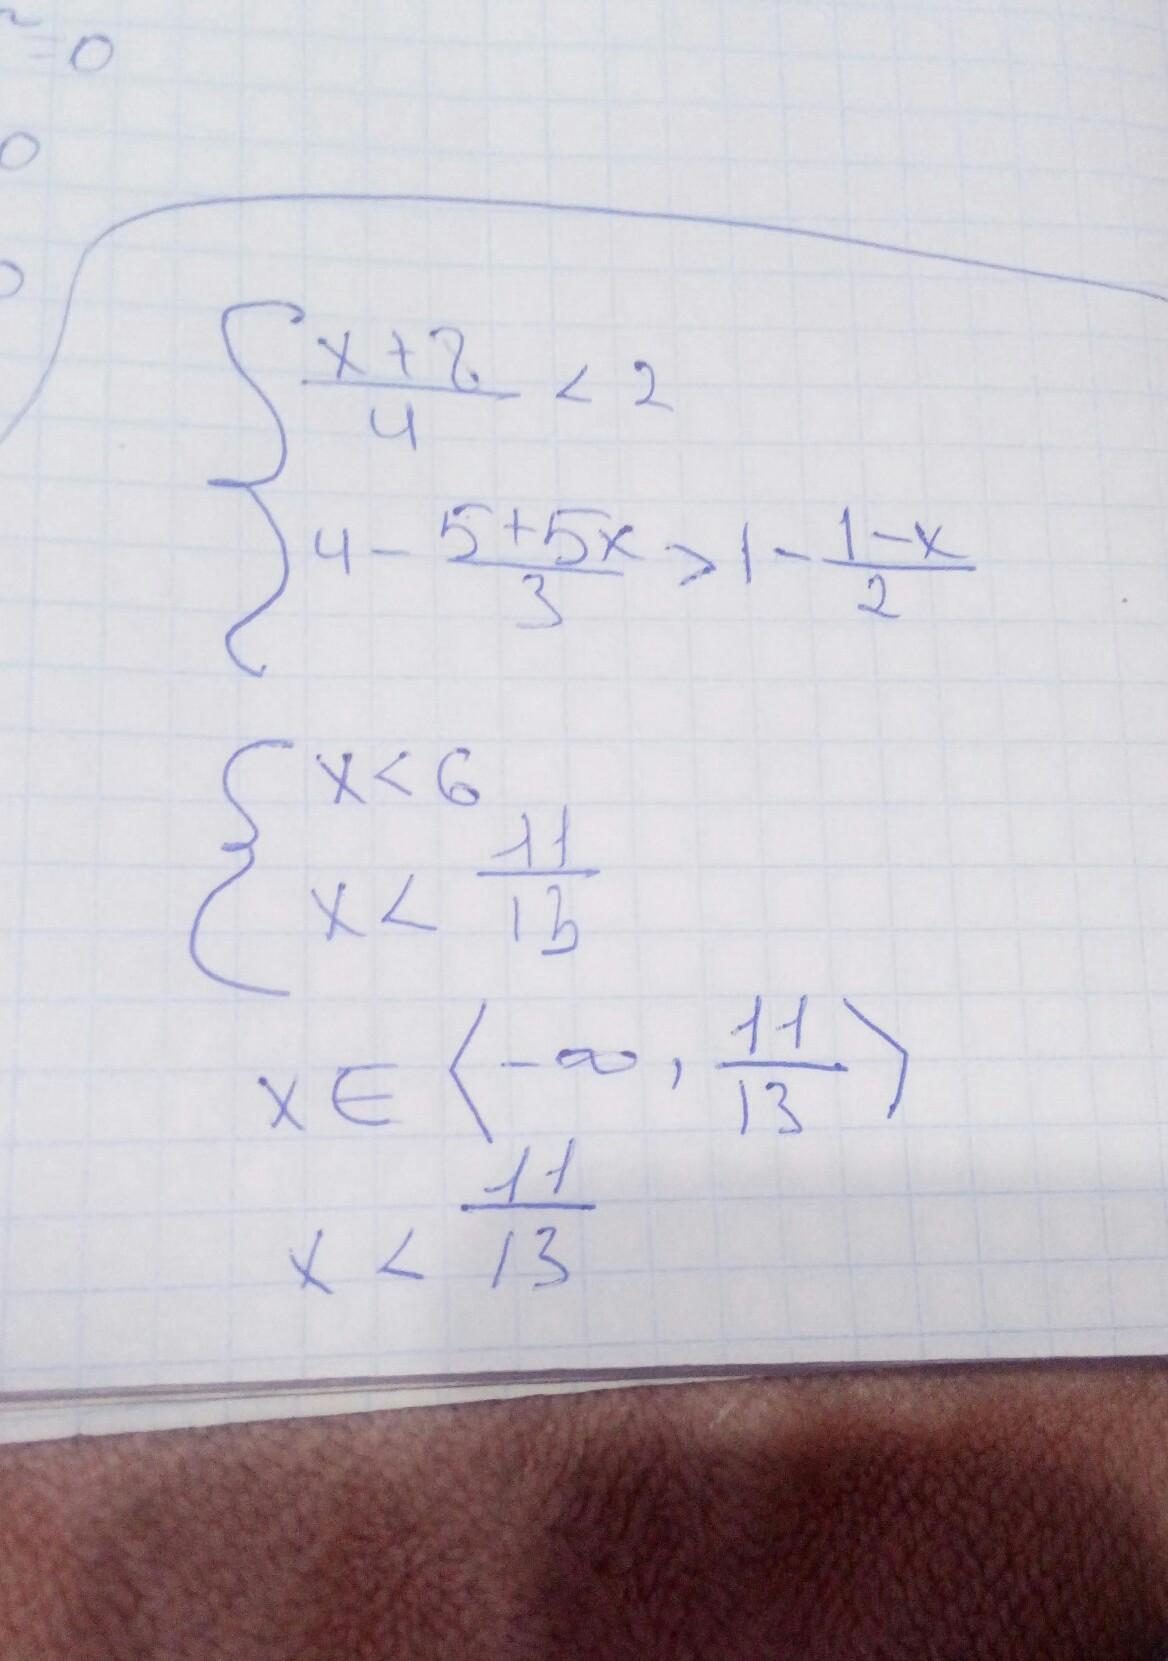 =0
0
{ (x+2)/4 < 2
4 - (5+5x)/3 > 1 - (1-x)/2
{ x < 6
x < 11/13
x ∈ ⟨-∞, 11/13⟩
x < 11/13